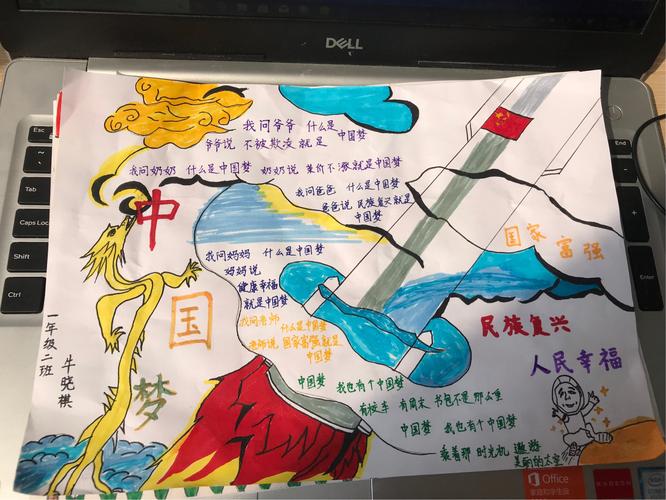 DELL
我问爷爷 什么是
中国梦
爷爷说 不被欺凌就是
我问奶奶 什么是中国梦 奶奶说 菜价不涨就是中国梦
我问爸爸 什么是中国梦
爸爸说 民族复兴就是
中国梦
中
国
梦
我问妈妈 什么是中国梦
妈妈说
健康幸福
就是中国梦
我问老师
什么是中国梦
老师说 国家富强就是
中国梦
国家富强
民族复兴
人民幸福
中国梦 我也有个中国梦
有校车 有周末 书包不是那么重
中国梦 我也有个中国梦
乘着那 时光机 遨游
美丽的太空
一年级二班 牛晓棋
Esc
Tab
Caps Loc
Shift
Ctrl
Office